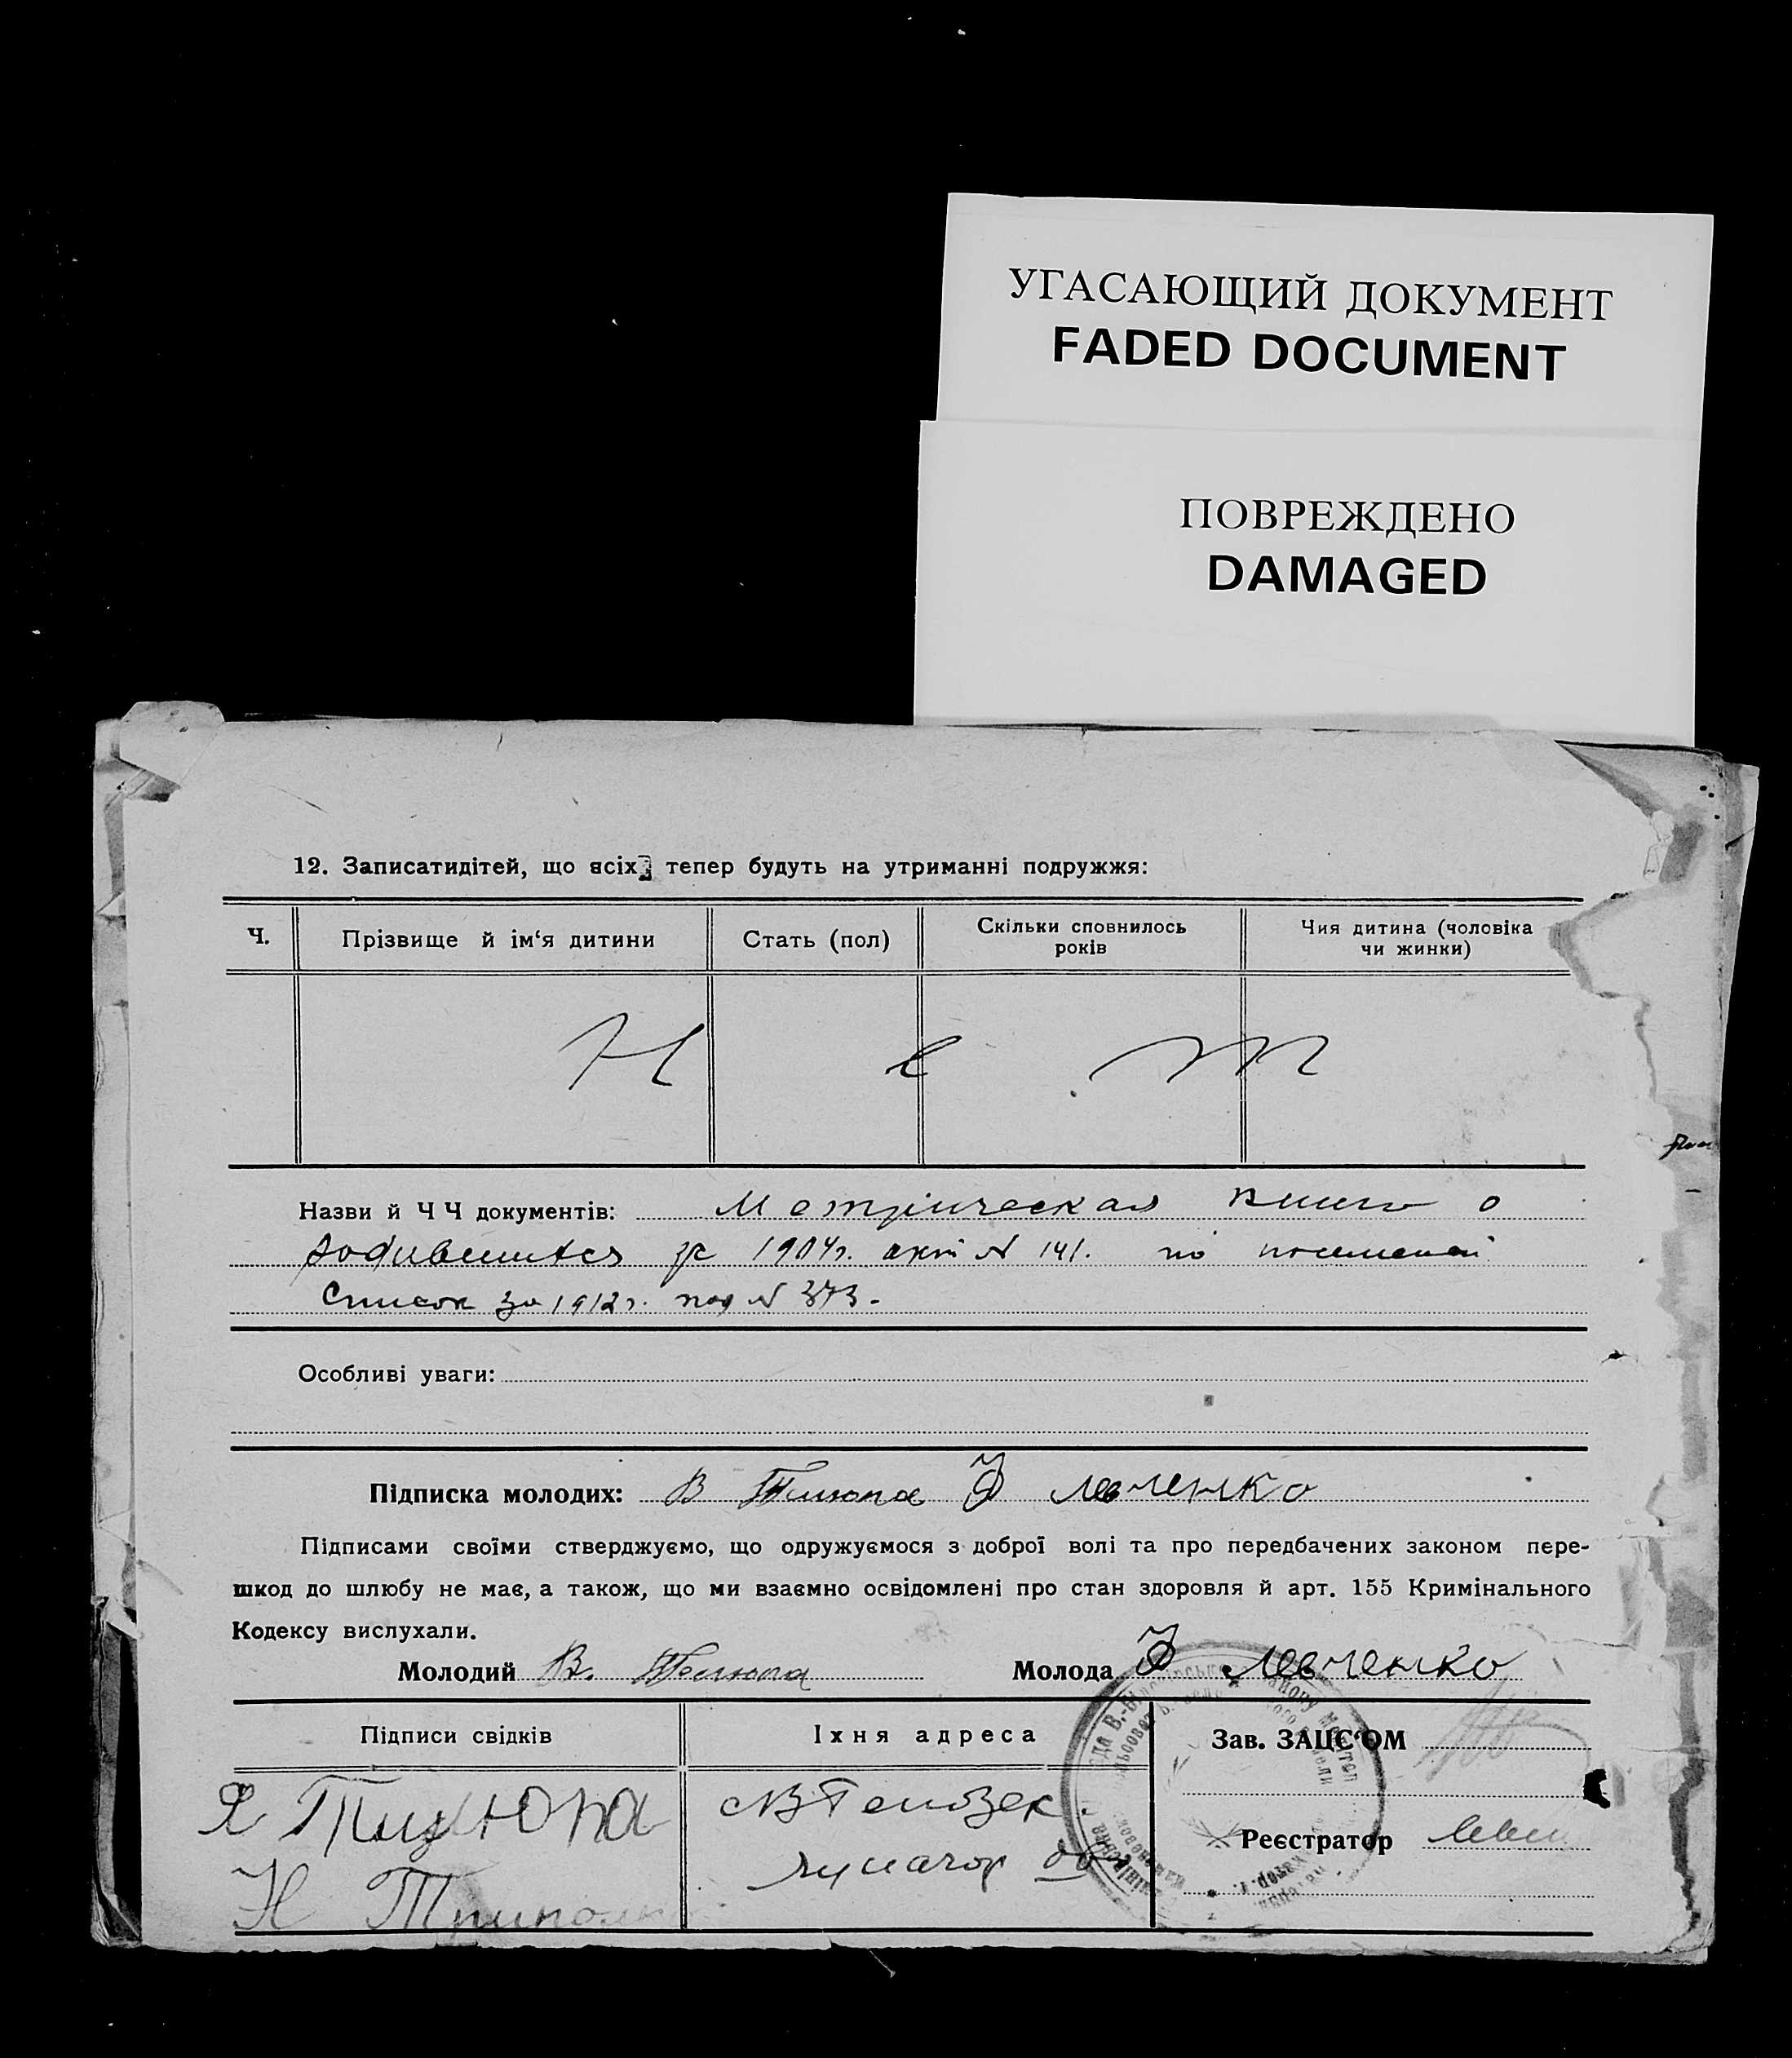 УГАСАЮЩИЙ ДОКУМЕНТ
FADED DOCUMENT
ПОВРЕЖДЕНО
DAMAGED
12. Записатидітей, що всіх тепер будуть на утриманні подружжя:
Ч.
Прізвище й ім‘я дитини
Стать (пол)
Скільки сповнилось
років
Чия дитина (чоловіка
чи жинки)
Нет
Назви й Ч Ч документів: Метрическая книга о
родившихся за 1904г. акт N 141. по
Список за 1912г. под N 373.
Особливі уваги:
Підписка молодих: В Тилюпа Левченко
Підписами своїми стверджуємо, що одружуємося з доброї волі та про передбачених законом пере-
шкод до шлюбу не має, а також, що ми взаємно освідомлені про стан здоровля й арт. 155 Кримінального
Кодексу вислухали.
Молодий В. Тилюпа
Молода Левченко
Підписи свідків
Їхня адреса
Зав. ЗАЦС‘ОМ
Реєстратор